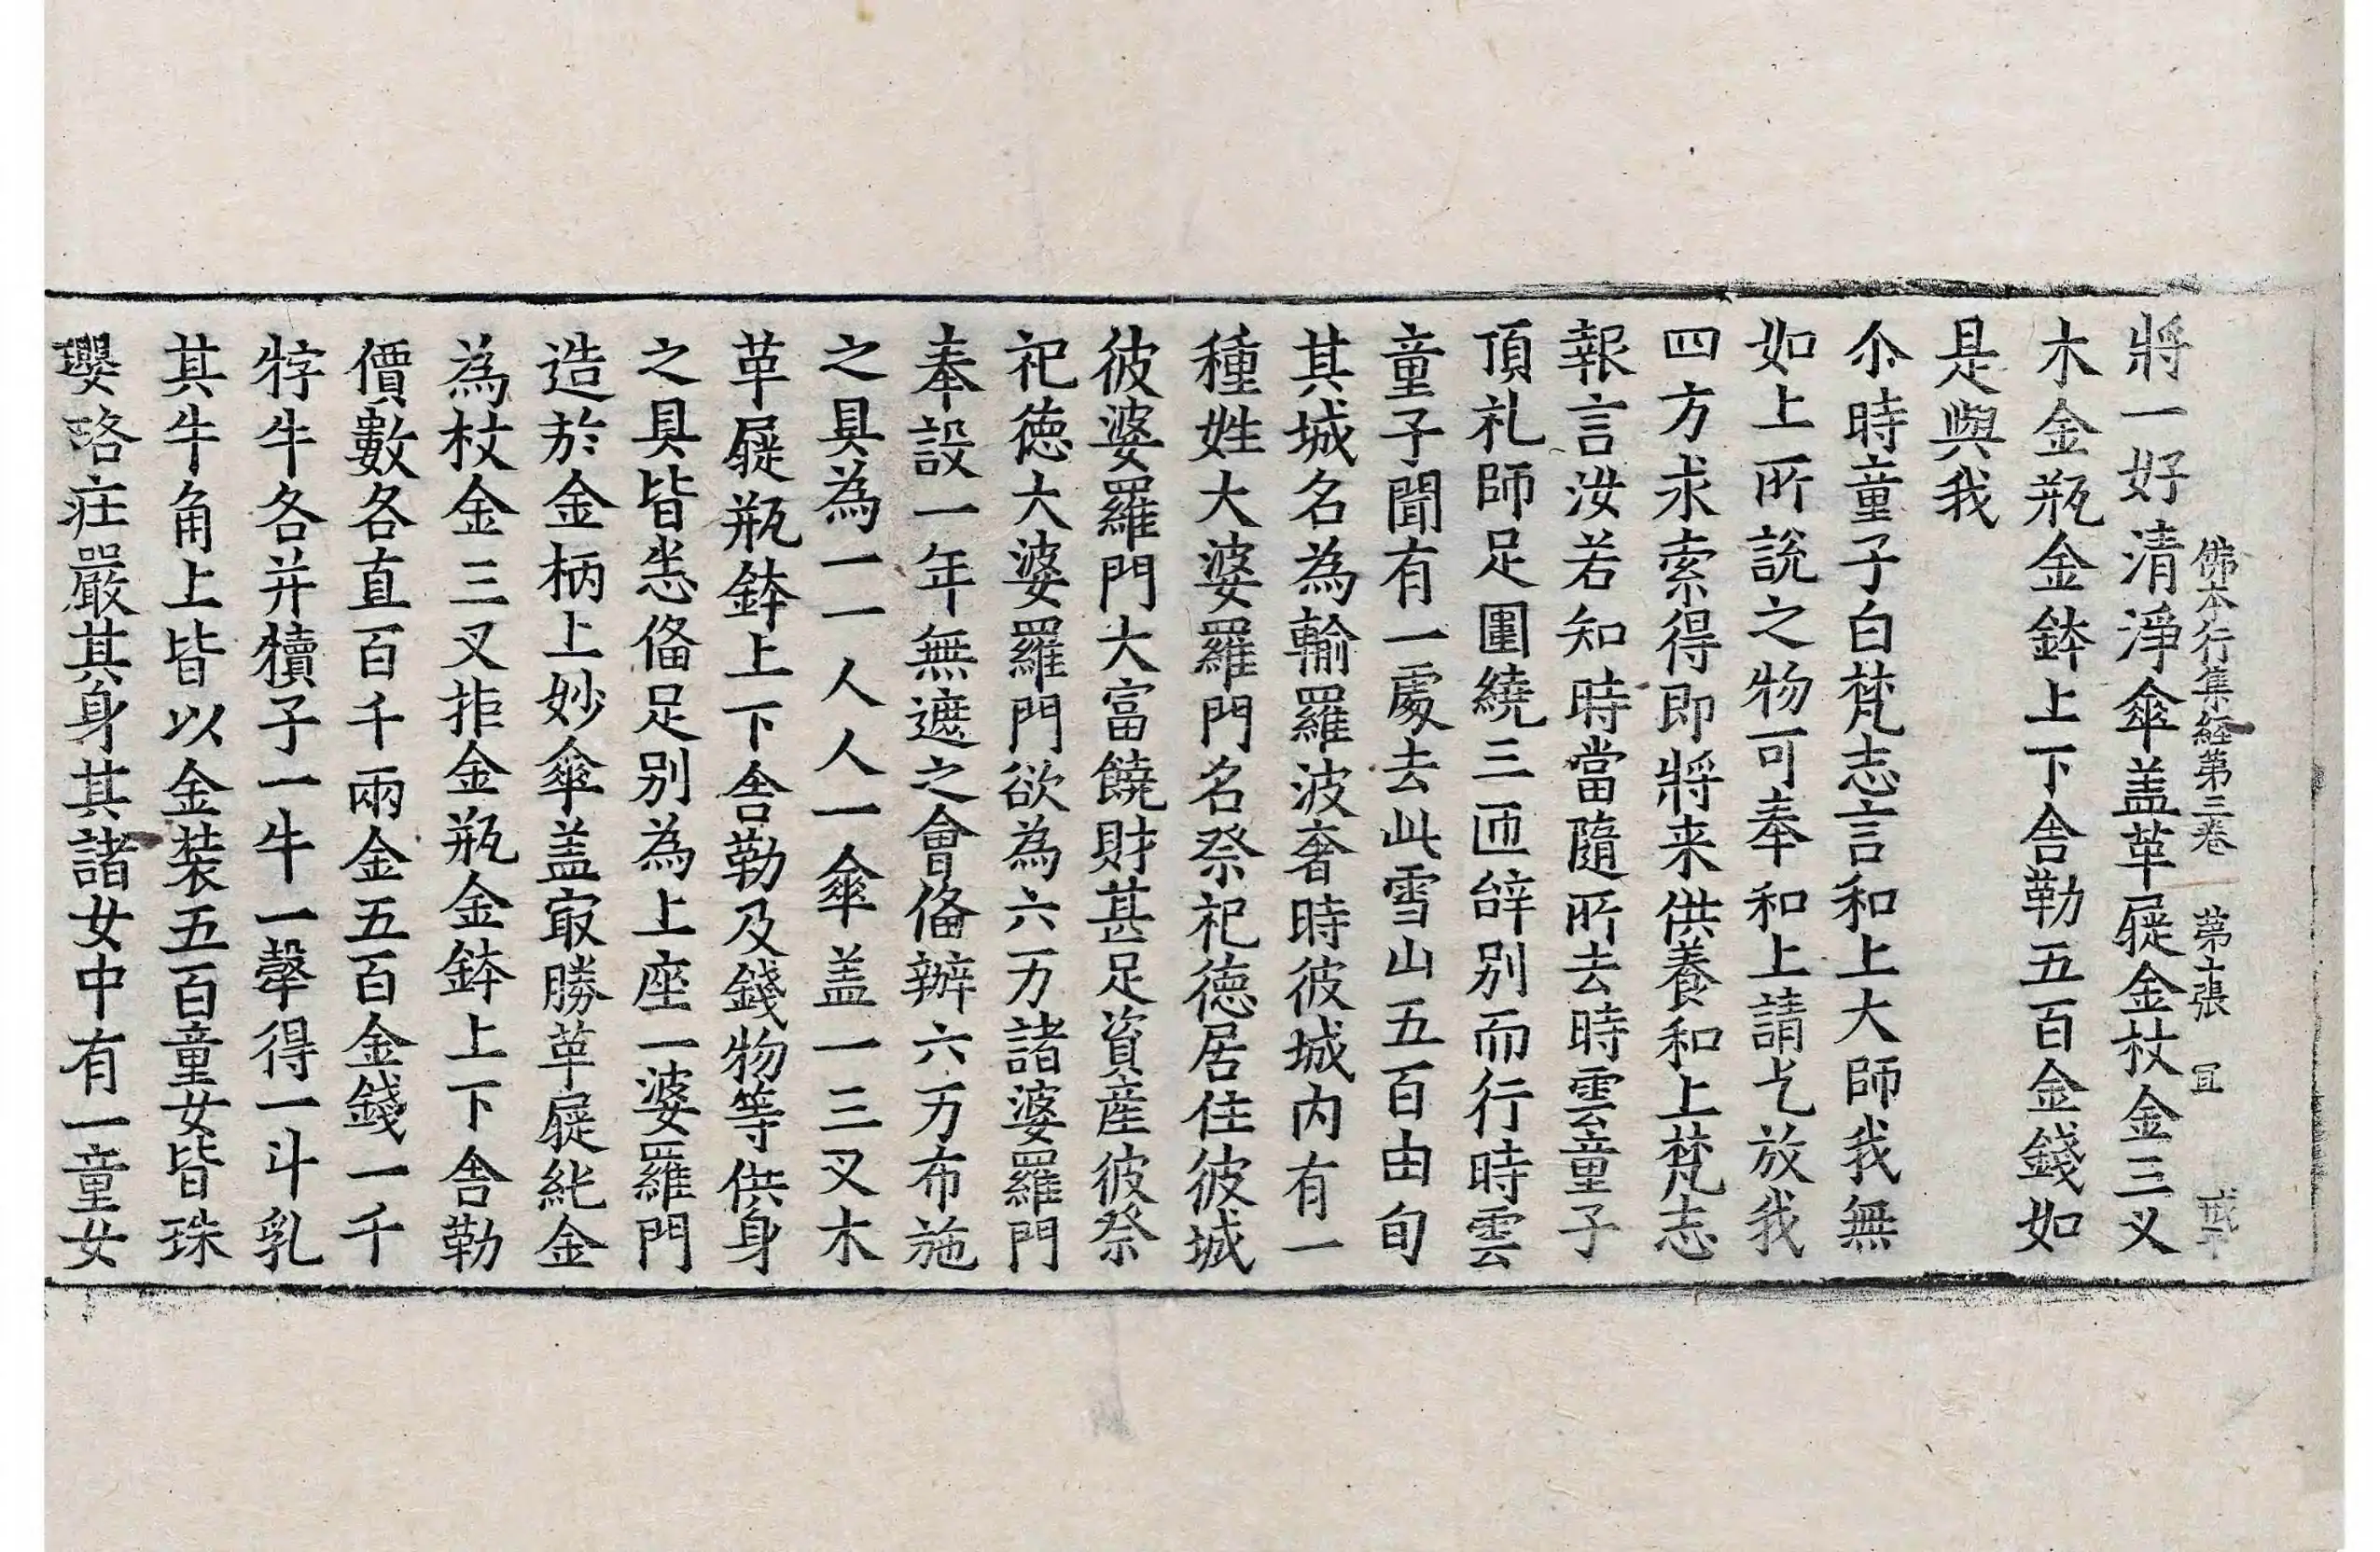 佛本行集経第三卷 第十張 冝
將一好清淨傘盖革屣金杖金三叉
木金瓶金鉢上下舎勒五百金錢如
是與我
尒時童子白梵志言和上大師我無
如上所說之物可奉和上請乞放我
四方求索得即將来供養和上梵志
報言汝若知時當隨所去時雲童子
頂礼師足圍繞三匝辝別而行時雲
童子聞有一處去此雪山五百由旬
其城名為輸羅波奢時彼城内有一
種姓大婆羅門名祭祀德居住彼城
彼婆羅門大富饒財甚足資産彼祭
祀德大婆羅門欲為六万諸婆羅門
奉設一年無遮之會俻辦六万布施
之具為一一人人一傘盖一三叉木
革屣瓶鉢上下舎勒及錢物等供身
之具皆悉俻足別為上座一婆羅門
造於金柄上妙傘盖㝡勝革屣純金
為杖金三叉拒金瓶金鉢上下舎勒
價數各直百千兩金五百金錢一千
牸牛各并犢子一牛一㲉得一斗乳
其牛角上皆以金装五百童女皆珠
瓔珞庄嚴其身其諸女中有一童女